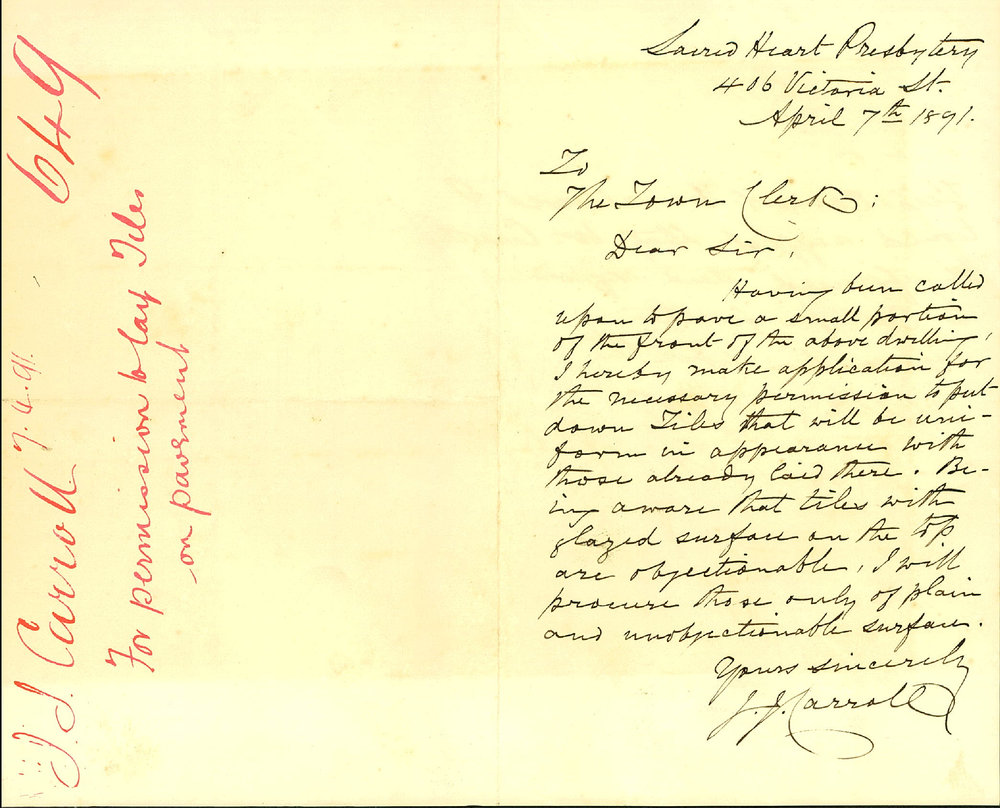 649
J. J. Carroll 7.4.91.
For permission to lay Tiles
on pavement
Sacred Heart Presbytery
406 Victoria St.
April 7th 1891.
To
The Town Clerk:
Dear Sir,
Having been called
upon to pave a small portion
of the front of the above dwelling,
I hereby make application for
the necessary permission to put
down Tiles that will be uni-
form in appearance with
those already laid there. Be-
ing aware that tiles with
glazed surface on the top
are objectionable, I will
procure those only of plain
and unobjectionable surface.
Yours sincerely
J. J. Carroll